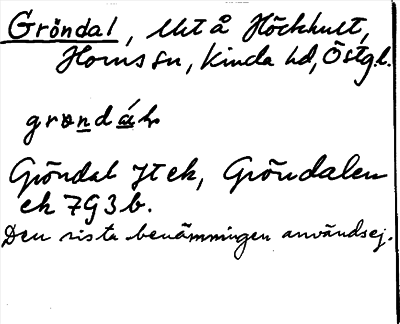 Gröndal, Ukt å Höckhult,
Horns sn, Kinda hd, Östg.l.
grøndáls
Gröndal Jt ek, Gröndalen
ek 7G3b.
Den sista benämningen användsej.